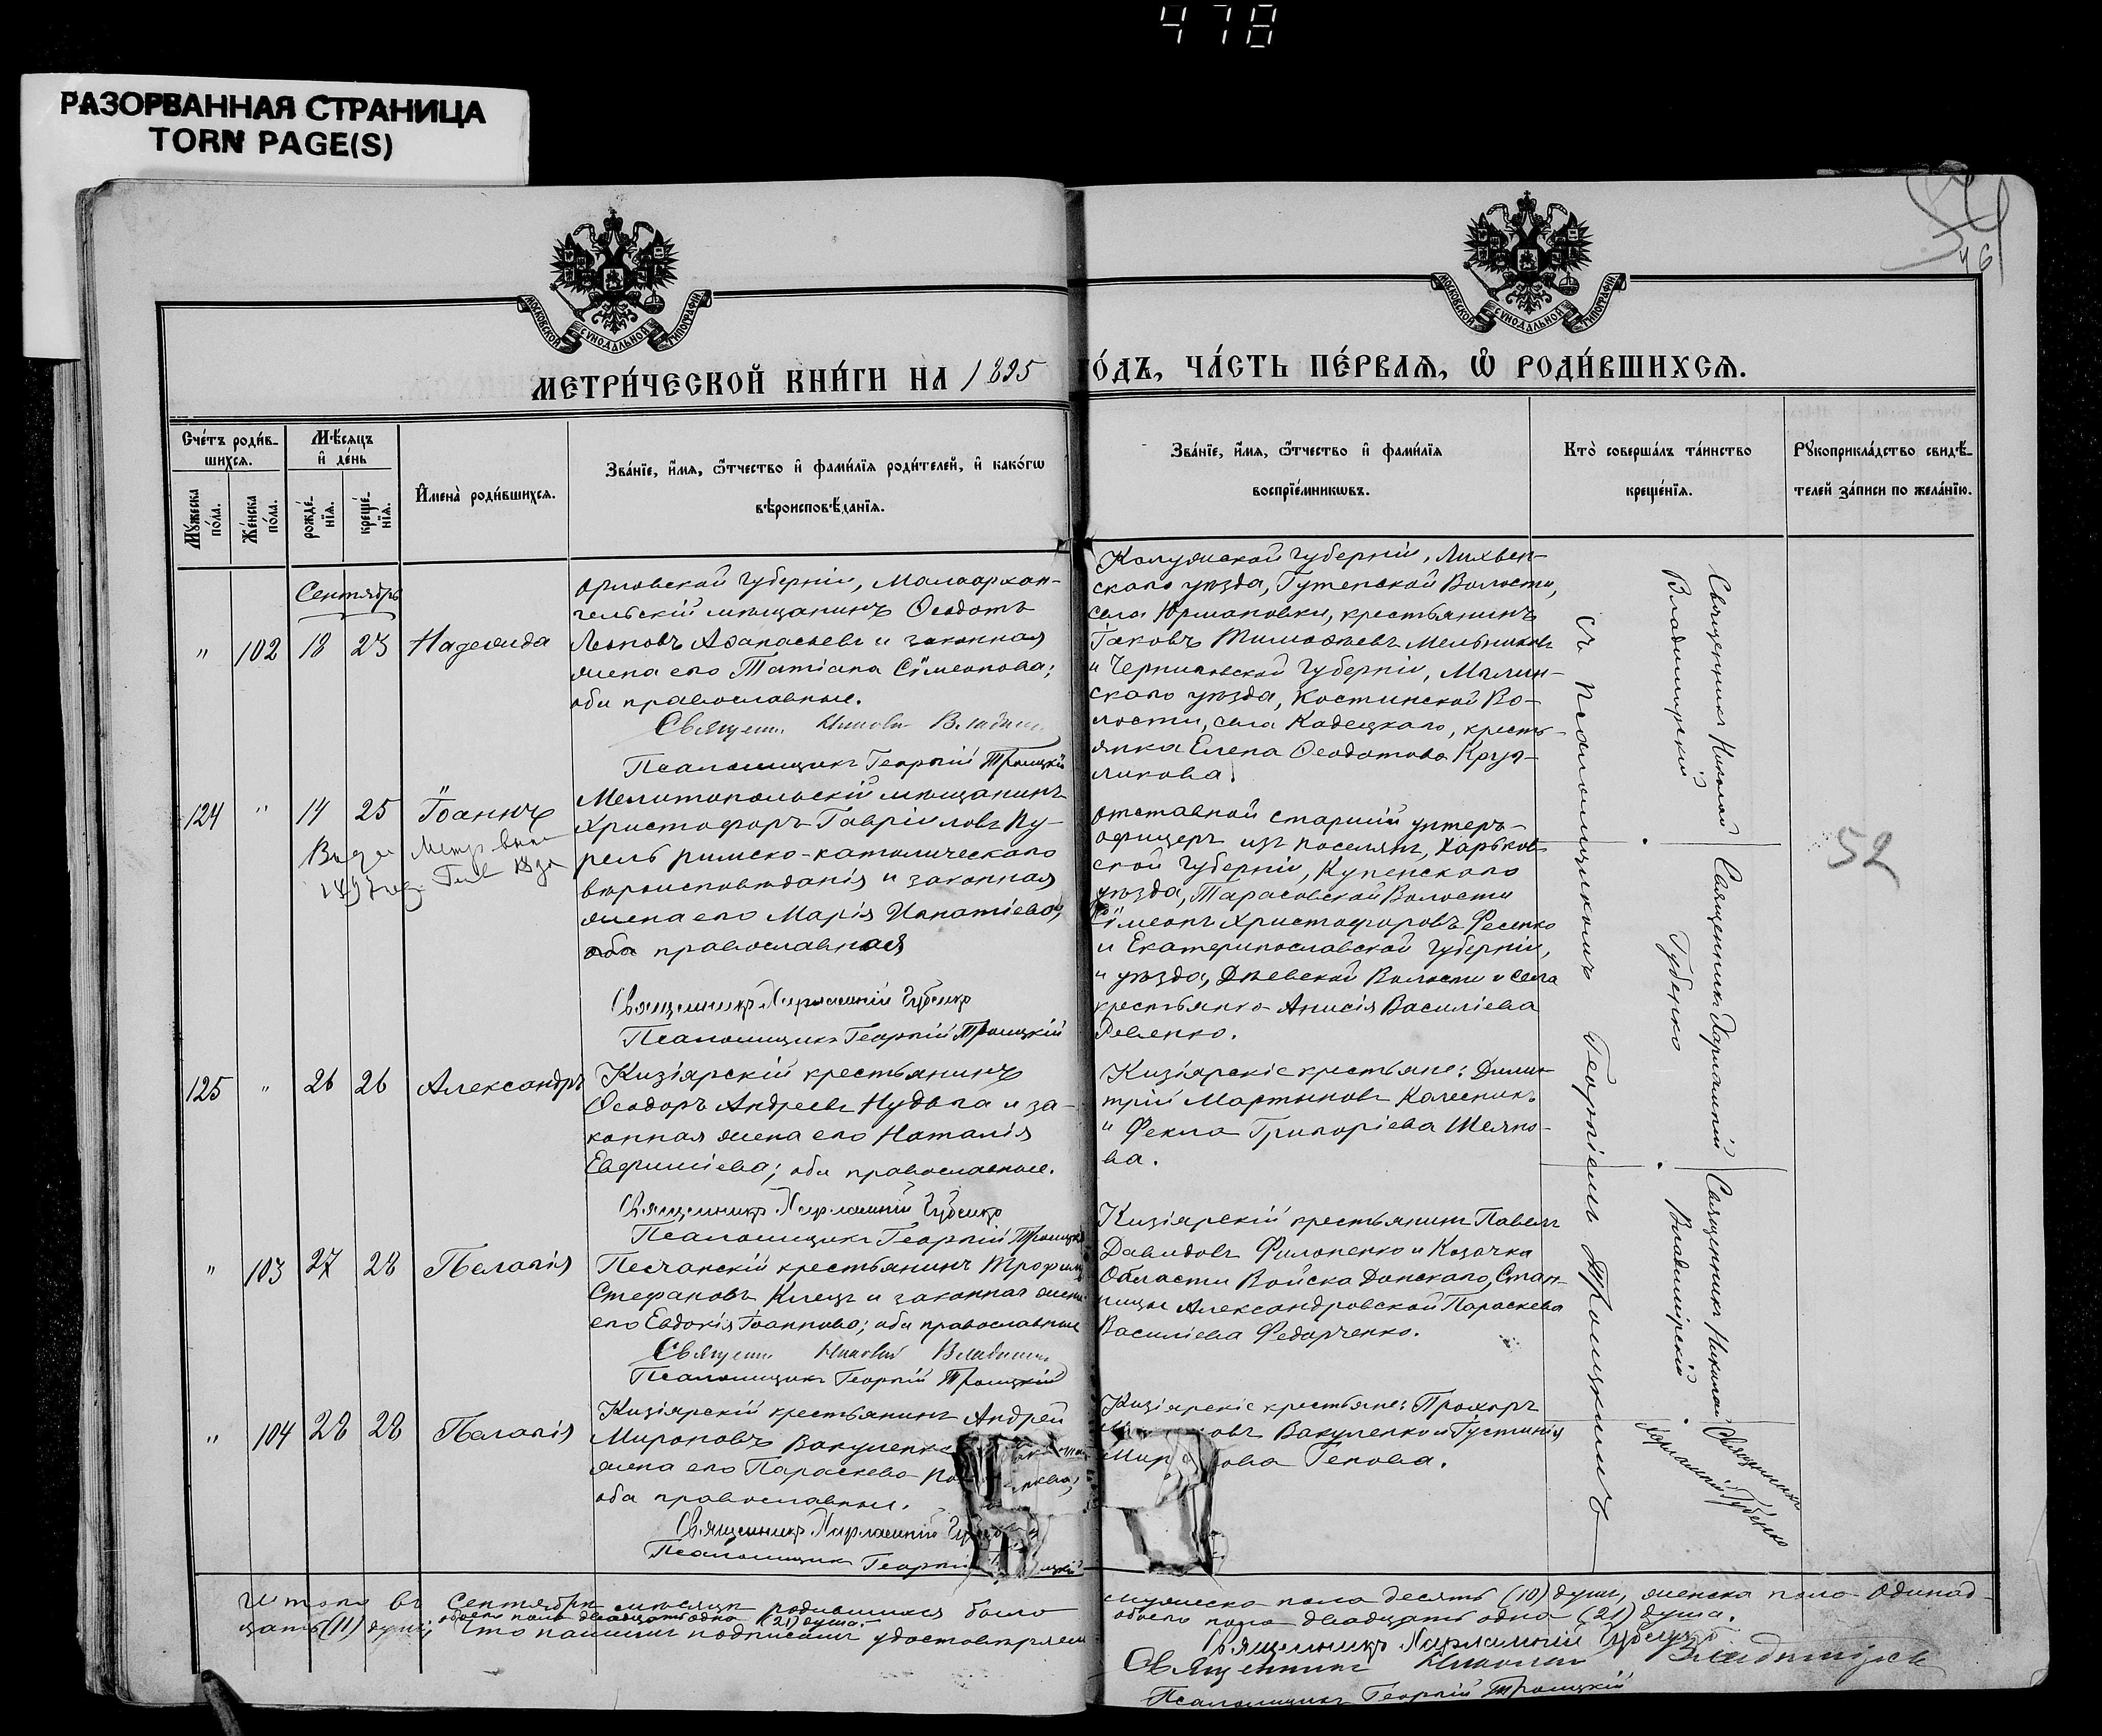 478
РАЗОРВАННАЯ СТРАНИЦА
TORN PAGE(S)
46
МОСКОВСКОЙ СУНОДАЛЬНОЙ ТИПОГРАФІИ
МОСКОВСКОЙ СУНОДАЛЬНОЙ ТИПОГРАФІИ
МЕТРИ́ЧЕСКОЙ КНИ́ГИ НА 1895
ГО́ДЪ, ЧА́СТЬ ПЕ́РВАЯ, Ѡ РОДИ́ВШИХСЯ.
Сче́тъ роди́в-
шихся.
Мꙋ́жеска по́ла.
Же́нска по́ла.
Мѣ́сяцъ
и де́нь
рожде́-
нія.
креще́-
нія.
Имена̀ роди́вшихся.
Зва́ніе, и́мя, ѻ҆́тчество и фами́лія роди́телей, и како́гѡ
вѣроисповѣ́данія.
Зва́ніе, и́мя, ѻ҆́тчество и фами́лія
воспріе́мникѡвъ.
Кто̀ соверша́лъ та́инство
креще́нія.
Рꙋкоприкла́дство свидѣ́-
телей за́писи по жела́нію.
Сентябрь
" 102 18 23 Надежда
Орловской губерніи, Малоархан-
гельскій мѣщанинъ Ѳеодотъ
Леоновъ Аѳанасьевъ и законная
жена его Татіана Сѵмеонова;
оба православные.
Священ. Николай Владим
Псаломщикъ Георгій Троицкій
Калужской губерніи, Лихвен-
скаго уѣзда, Гутенской Волости,
села Юрмановки, крестьянинъ
Іаковъ Тимоѳеевъ Мельниковъ
и Черниговской губерніи, Мглин-
скаго уѣзда, Костинской Во-
лости, села Кадецкаго, кресть-
янка Елена Ѳеодотова Круг-
ликова.
124 " 14 25 Іоаннъ
Мелитопольскій мѣщанинъ
Христофоръ Гавріиловъ Ку-
рель римско-католическаго
вѣроисповѣданія и законная
жена его Марія Игнатіева,
оба православная
Священникъ Харлампій Губенко
Псаломщикъ Георгій Троицкій
Отставной старшій унтеръ-
офицеръ изъ поселянъ, Харьков-
ской губерніи, Купенскаго
уѣзда, Тарасовской Волости
Сѵмеонъ Христофоровъ Фесенко
и Екатеринославской губерніи,
и уѣзда, Діевской Волости и села
крестьянка Анисія Василіева
Ревенко.
52
125 " 26 26 Александръ
Кизіярскій крестьянинъ
Ѳеодоръ Андреевъ Нудьга и за-
конная жена его Наталія
Евфиміева; оба православные.
Священникъ Харлампій Губенко
Псаломщикъ Георгій Троицкій
Кизіярскіе крестьяне: Дими-
трій Мартыновъ Колесникъ
и Фекла Григоріева Шеяно-
ва.
" 103 27 28 Пелагія
Песчанскій крестьянинъ Трофимъ
Стефановъ Клецъ и законная жена
его Евдокія Іоаннова; оба православные
Священ Николай Владим
Псаломщикъ Георгій Троицкій
Кизіярскій крестьянинъ Павелъ
Давидовъ Филоненко и Козачка
Области Войска Донскаго, Стан-
ицы Александровской Параскева
Василіева Федорченко.
" 104 28 28 Пелагія
Кизіярскій крестьянинъ Андрей
Мироновъ Вакуленко
жена его Параскева
оба православные.
Священникъ Харлампій
Псаломщикъ Георгій
Кизіярскіе крестьяне: Прохоръ
Вакуленко и Іустинія
Генова.
Священникъ Николай
Владимірскій
Священникъ Харлампій
Губенко
Священникъ Николай
Владимірскій
Священникъ
Харлампій Губенко
съ псаломщикомъ Георгіемъ Троицкимъ
Итого въ Сентябрѣ мѣсяцѣ родившихся было мужеска пола десять (10) душъ, женска пола одинад-
цать (11) душъ; обоего пола двадцать одна (21) душа. обоего пола двадцать одна (21) душа.
Что нашими подписями удостовѣряемъ
Священникъ Харлампій Губенко
Священникъ Николай Владимірскій
Псаломщикъ Георгій Троицкій